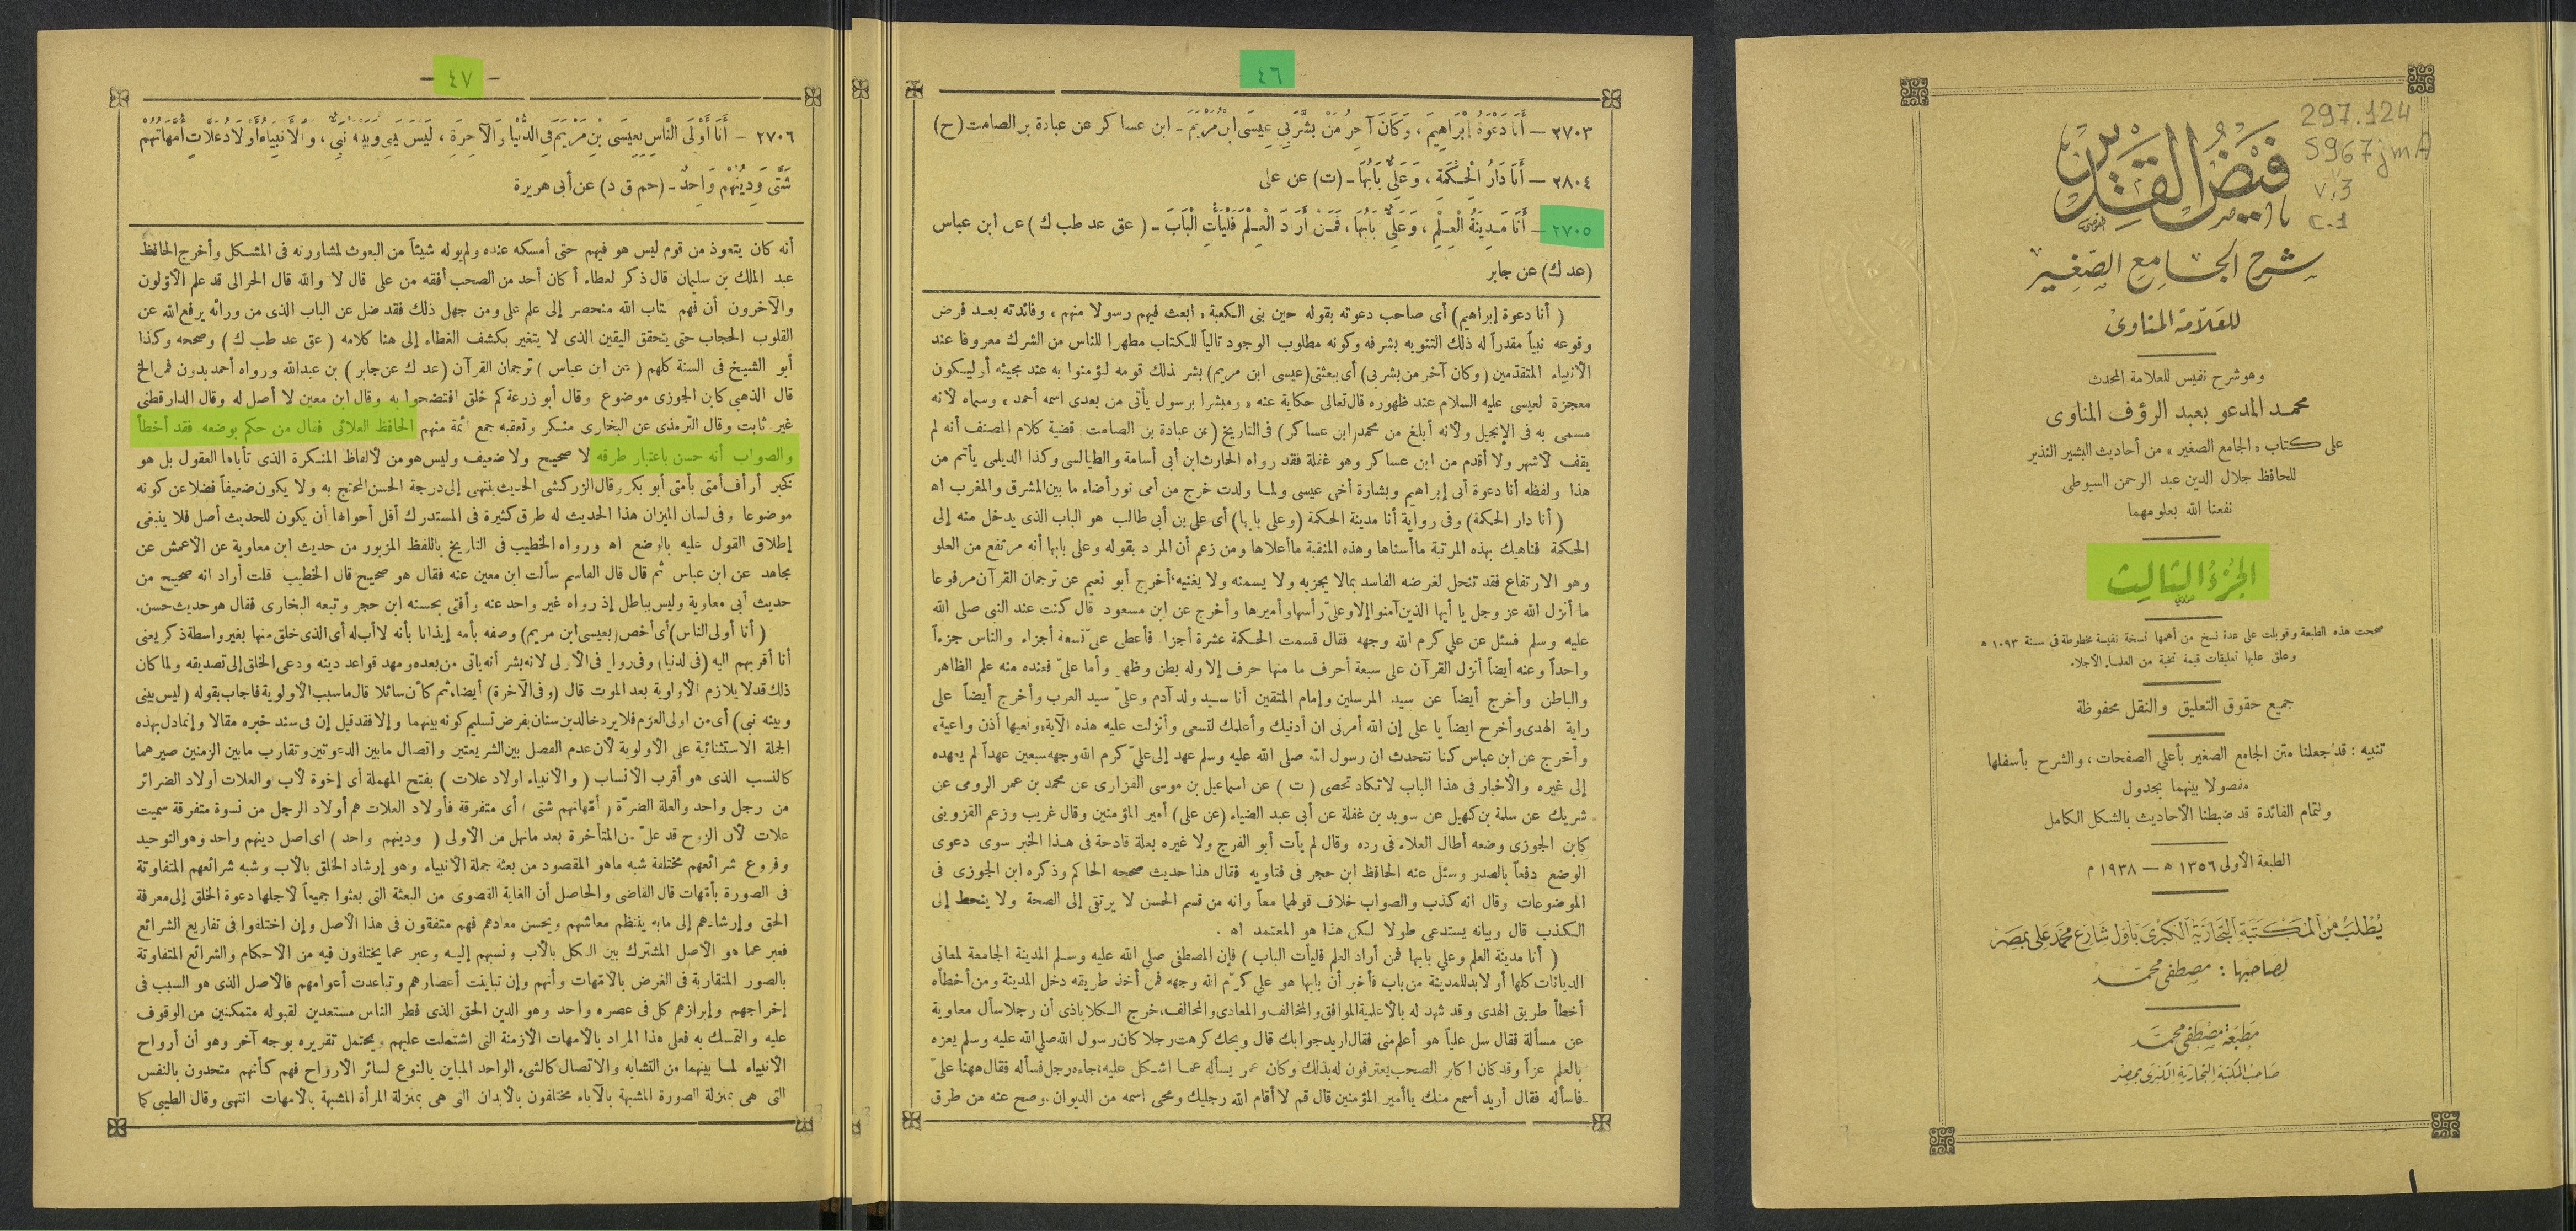 297.124
S967jmA
v.3
c.1
فيض القدير
شرح الجامع الصغير
للعلامة المناوى
وهو شرح نفيس للعلامة المحدث
محمد المدعو بعبد الرؤف المناوى
على كتاب « الجامع الصغير » من أحاديث البشير النذير
للحافظ جلال الدين عبد الرحمن السيوطى
نفعنا الله بعلومهما
الجزء الثالث
صححت هذه الطبعة وقوبلت على عدة نسخ من أهمها نسخة نفيسة مخطوطة فى سنة ١٠٩٣ ه
وعلق عليها تعليقات قيمة نخبة من العلماء الأجلاء
جميع حقوق التعليق والنقل محفوظة
تنبيه : قد جعلنا متن الجامع الصغير بأعلي الصفحات ، والشرح بأسفلها
مفصولا بينهما بجدول
ولتمام الفائدة قد ضبطنا الأحاديث بالشكل الكامل
الطبعة الأولى ١٣٥٦ ه — ١٩٣٨ م
يُطلَبُ مِنَ المكتَبَة التجارية الكبرى بأول شارع محمد على بمصر
لصاحبها : مصطفى محمد
مطبعة مصطفى محمد
صاحب المكتبة التجارية الكبرى بمصر
٤٦
٢٧٠٣ — أَنَا دَعْوَةُ إِبْرَاهِيمَ ، وَكَانَ آخِرُ مَنْ بَشَّرَ بِي عِيسَى ابْنُ مَرْيَمَ - ابن عساكر عن عبادة بن الصامت (ح)
٢٨٠٤ — أَنَا دَارُ الْحِكْمَةِ ، وَعَلِيٌّ بَابُهَا - (ت) عن على
٢٧٠٥ — أَنَا مَدِينَةُ الْعِلْمِ ، وَعَلِيٌّ بَابُهَا ، فَمَنْ أَرَادَ الْعِلْمَ فَلْيَأْتِ الْبَابَ - ( عق عد طب ك ) عن ابن عباس
(عد ك) عن جابر
( أنا دعوة إبراهيم) أى صاحب دعوته بقوله حين بنى الكعبة « ابعث فيهم رسولا منهم » وفائدته بعد فرض
وقوعه نبياً مقدراً له ذلك التنويه بشرفه وكونه مطلوب الوجود تالياً للكتاب مطهرا للناس من الشرك معروفا عند
الأنبياء المتقدّمين ( وكان آخر من بشر بى) أى ببعثتى (عيسى ابن مريم) بشر بذلك قومه ليؤمنوا به عند مجيئه أو ليكون
معجزة لعيسى عليه السلام عند ظهوره قال تعالى حكاية عنه « ومبشرا برسول يأتى من بعدى اسمه أحمد » وسماه لأنه
مسمى به فى الإنجيل ولأنه أبلغ من محمد (ابن عساكر) فى التاريخ (عن عبادة بن الصامت) قضية كلام المصنف أنه لم
يقف لأشهر ولا أقدم من ابن عساكر وهو غفلة فقد رواه الحارث ابن أبى أسامة والطيالسى وكذا الديلمى بأتم من
هذا ولفظه أنا دعوة أبى إبراهيم وبشارة أخى عيسى ولما ولدت خرج من أمى نور أضاء ما بين المشرق والمغرب اه
( أنا دار الحكمة) وفى رواية أنا مدينة الحكمة (وعلى بابها) أى على بن أبى طالب هو الباب الذى يدخل منه إلى
الحكمة فناهيك بهذه المرتبة ما أسناها وهذه المنقبة ما أعلاها ومن زعم أن المراد بقوله وعلى بابها أنه مرتفع من العلو
وهو الارتفاع فقد تنحل لغرضه الفاسد بما لا يجزيه ولا يسمنه ولا يغنيه، أخرج أبو نعيم عن ترجمان القرآن مرفوعا
ما أنزل الله عز وجل يا أيها الذين آمنوا إلا وعلىّ رأسها وأميرها وأخرج عن ابن مسعود قال كنت عند النبى صلى الله
عليه وسلم فسئل عن علي كرم الله وجهه فقال قسمت الحكمة عشرة أجزاء فأعطى علىّ تسعة أجزاء والناس جزءاً
واحداً وعنه أيضاً أنزل القرآن على سبعة أحرف ما منها حرف إلا وله بطن وظهر وأما علىّ فعنده منه علم الظاهر
والباطن وأخرج أيضاً عن سيد المرسلين وإمام المتقين أنا سيد ولد آدم وعلىّ سيد العرب وأخرج أيضاً على
راية الهدى وأخرج أيضاً يا على إن الله أمرنى ان أدنيك وأعلمك لتعى وأنزلت عليه هذه الآية « وتعيها أذن واعية »
وأخرج عن ابن عباس كنا نتحدث ان رسول الله صلى الله عليه وسلم عهد إلى علىّ كرم الله وجهه سبعين عهداً لم يعهده
إلى غيره والأخبار فى هذا الباب لا تكاد تحصى ( ت ) عن اسماعيل بن موسى الفزارى عن محمد بن عمر الرومى عن
شريك عن سلمة بن كهيل عن سويد بن غفلة عن أبى عبد الضياء (عن على) أمير المؤمنين وقال غريب وزعم القزوينى
كابن الجوزى وضعه أطال العلاء فى رده وقال لم يأت أبو الفرج ولا غيره بعلة قادحة فى هذا الخبر سوى دعوى
الوضع دفعاً بالصدر وسئل عنه الحافظ ابن حجر فى فتاويه فقال هذا حديث صححه الحاكم وذكره ابن الجوزى فى
الموضوعات وقال انه كذب والصواب خلاف قولهما معاً وانه من قسم الحسن لا يرتقى إلى الصحة ولا ينحط إلى
الكذب قال وبيانه يستدعى طولا لكن هذا هو المعتمد اه .
( أنا مدينة العلم وعلي بابها فمن أراد العلم فليأت الباب ) فإن المصطفى صلى الله عليه وسلم المدينة الجامعة لمعانى
الديانات كلها أو لا بد للمدينة من باب فأخبر أن بابها هو علي كرّم الله وجهه فمن أخذ طريقه دخل المدينة ومن أخطأه
أخطأ طريق الهدى وقد شهد له بالأعلمية الموافق والمخالف والمعادى والمحالف، خرج الكلاباذى أن رجلا سأل معاوية
عن مسألة فقال سل علياً هو أعلم منى فقال اريد جوابك قال ويحك كرهت رجلا كان رسول الله صلى الله عليه وسلم يعزه
بالعلم عزاً وقد كان أكابر الصحب يعترفون له بذلك وكان عمر يسأله عما اشكل عليه، جاءه رجل فسأله فقال ههنا علىّ
فاسأله فقال أريد أسمع منك يا أمير المؤمنين قال قم لا أقام الله رجليك ومحى اسمه من الديوان، وصح عنه من طرق
٤٧
٢٧٠٦ — أَنَا أَوْلَى النَّاسِ بِعِيسَى بْنِ مَرْيَمَ فِي الدُّنْيَا وَالْآخِرَةِ ، لَيْسَ بَيْنِي وَبَيْنَهُ نَبِيٌّ ، وَالْأَنْبِيَاءُ أَوْلَادُ عَلَّاتٍ أُمَّهَاتُهُمْ
شَتَّى وَدِينُهُمْ وَاحِدٌ - (حم ق د) عن أبى هريرة
أنه كان يتعوذ من قوم ليس هو فيهم حتى أمسكه عنده ولم يوله شيئاً من البعوث لمشاورته فى المشكل وأخرج الحافظ
عبد الملك بن سليمان قال ذكر لعطاء أكان أحد من الصحب أفقه من على قال لا والله قال الحرالى قد علم الأولون
والآخرون أن فهم كتاب الله منحصر إلى علم على ومن جهل ذلك فقد ضل عن الباب الذى من ورائه يرفع الله عن
القلوب الحجاب حتى يتحقق اليقين الذى لا يتغير بكشف الغطاء إلى هنا كلامه ( عق عد طب ك ) وصححه وكذا
أبو الشيخ فى السنة كلهم ( عن ابن عباس ) ترجمان القرآن ( عد ك عن جابر ) بن عبدالله ورواه أحمد بدون فمن الخ
قال الذهبى كابن الجوزى موضوع وقال أبو زرعة كم خلق افتضحوا به وقال ابن معين لا أصل له وقال الدارقطنى
غير ثابت وقال الترمذى عن البخارى منكر وتعقبه جمع أئمة منهم الحافظ العلائى فقال من حكم بوضعه فقد أخطأ
والصواب أنه حسن باعتبار طرقه لا صحيح ولا ضعيف وليس هو من الألفاظ المنكرة الذى تأباها العقول بل هو
كخبر أرأف أمتى بأمتى أبو بكر وقال الزركشى الحديث ينتهى إلى درجة الحسن المحتج به ولا يكون ضعيفاً فضلا عن كونه
موضوعا وفى لسان الميزان هذا الحديث له طرق كثيرة فى المستدرك أقل أحوالها أن يكون للحديث أصل فلا ينبغى
إطلاق القول عليه بالوضع اه ورواه الخطيب فى التاريخ باللفظ المزبور من حديث ابن معاوية عن الأعمش عن
مجاهد عن ابن عباس ثم قال قال القاسم سألت ابن معين عنه فقال هو صحيح قال الخطيب قلت أراد انه صحيح من
حديث أبى معاوية وليس بباطل إذ رواه غير واحد عنه وأفتى بحسنه ابن حجر وتبعه البخارى فقال هو حديث حسن.
( أنا أولى الناس) أى أخص (بعيسى ابن مريم) وصفه بأمه إيذانا بأنه لا أب له أى الذى خلق منها بغير واسطة ذكر يعنى
أنا أقربهم اليه (فى الدنيا) وفى رواية فى الأولى لأنه بشر أنه يأتى من بعده ومهد قواعد دينه ودعى الخلق إلى تصديقه ولما كان
ذلك قد لا يلازم الأولوية بعد الموت قال (وفى الآخرة) أيضا، ثم كأن سائلا قال ما سبب الأولوية فأجاب بقوله (ليس بينى
وبينه نبى) أى من اولى العزم فلا يرد خالد بن سنان بفرض تسليم كونه بينهما وإلا فقد قيل إن فى سند خبره مقالا وإنما دل بهذه
الجملة الاستثنائية على الأولوية لأن عدم الفصل بين الشريعتين واتصال ما بين الدعوتين وتقارب ما بين الزمنين صيرهما
كالنسب الذى هو أقرب الأنساب ( والأنبياء اولاد علات ) بفتح المهملة أى إخوة لأب والعلات أولاد الضرائر
من رجل واحد والعلة الضرّة ( أمّهاتهم شتى ) أى متفرقة فأولاد العلات هم أولاد الرجل من نسوة متفرقة سميت
علات لأن الزوج قد علّ من المتأخرة بعد ما نهل من الأولى ( ودينهم واحد ) اى اصل دينهم واحد وهو التوحيد
وفروع شرائعهم مختلفة شبه ما هو المقصود من بعثة جملة الأنبياء وهو إرشاد الخلق بالأب وشبه شرائعهم المتفاوتة
فى الصورة بأمّهات قال القاضى والحاصل أن الغاية القصوى من البعثة التى بعثوا جميعاً لأجلها دعوة الخلق إلى معرفة
الحق وإرشادهم إلى ما به ينتظم معاشهم ويحسن معادهم فهم متفقون فى هذا الأصل وإن اختلفوا فى تفاريع الشرائع
فعبر عما هو الأصل المشترك بين الكل بالأب ونسبهم إليه وعبر عما يختلفون فيه من الأحكام والشرائع المتفاوتة
بالصور المتقاربة فى الغرض بالأمّهات وأنهم وإن تباينت أعصارهم وتباعدت أعوامهم فالأصل الذى هو السبب فى
إخراجهم وإبرازهم كل فى عصره واحد وهو الدين الحق الذى فطر الناس مستعدين لقبوله متمكنين من الوقوف
عليه والتمسك به فعلى هذا المراد بالأمهات الأزمنة التى اشتملت عليهم ويحتمل تقريره بوجه آخر وهو أن أرواح
الأنبياء لما بينهما من التشابه والاتصال كالشىء الواحد المباين بالنوع لسائر الأرواح فهم كأنهم متحدون بالنفس
التى هى بمنزلة الصورة المشبهة بالآباء مختلفون بالأبدان التى هى بمنزلة المرأة المشبهة بالأمهات انتهى وقال الطيبى كما